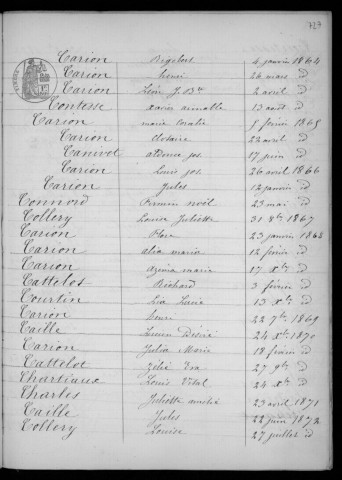 Carion 4 janvier 1864
Carion henri 26 mars id
Carion Léon J. Bte 2 avril id
Contesse xavier 13 août id
Carion marie 5 février 1865
Carion clotaire 22 avril id
Canivet aldonce jos. 17 juin id
Carion Louis jos. 26 avril 1866
Carion Jules 12 janvier id
Connord Firmin noël 23 mai id
Collery Louise Juliette 31 8bre 1867
Carion Flore 23 janvier 1868
Carion alix maria 12 février id
Carion marie 17 Xbre id
Cattelot Richard 3 février id
Courtin Lia 13 Xbre id
Carion henri 22 7bre 1869
Caille Lucien Désiré 24 Xbre 1870
Carion Julia Marie 18 février id
Cattelot Zélie 27 9bre id
Chartiaux Louis Vital 24 Xbre id
Charles Juliette 23 avril 1871
Caille Jules 22 juin 1872
Collery Louise 27 juillet id